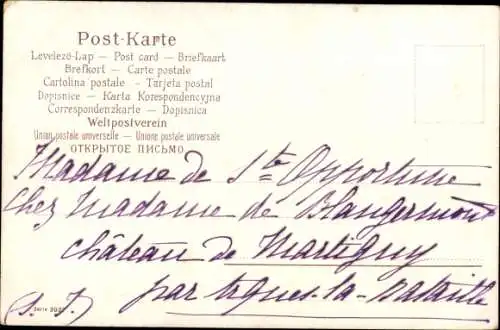 Post-Karte
Levelező-Lap — Post card — Briefkaart
Brefkort — Carte postale
Cartolina postale - Tarjeta postal
Dopisnice — Karta Korespondencyjna
Correspondenzkarte — Dopisnica
Weltpostverein
Union postale universelle — Unione postale universale
ОТКРЫТОЕ ПИСЬМО
Madame de Ste Opportune
Chez Madame de Blangermont
château de Martigny
par Arques-la-Bataille
(S. I.)
Serie